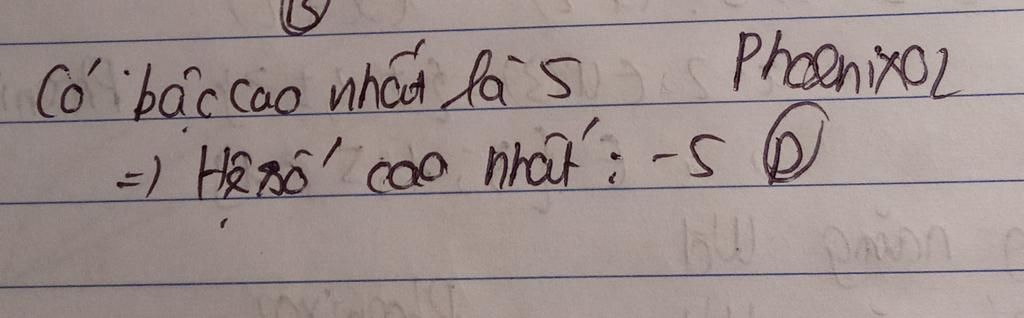 Có bậc cao nhất là 5 Phoenix02
=) Hệ số cao nhất: -5 D